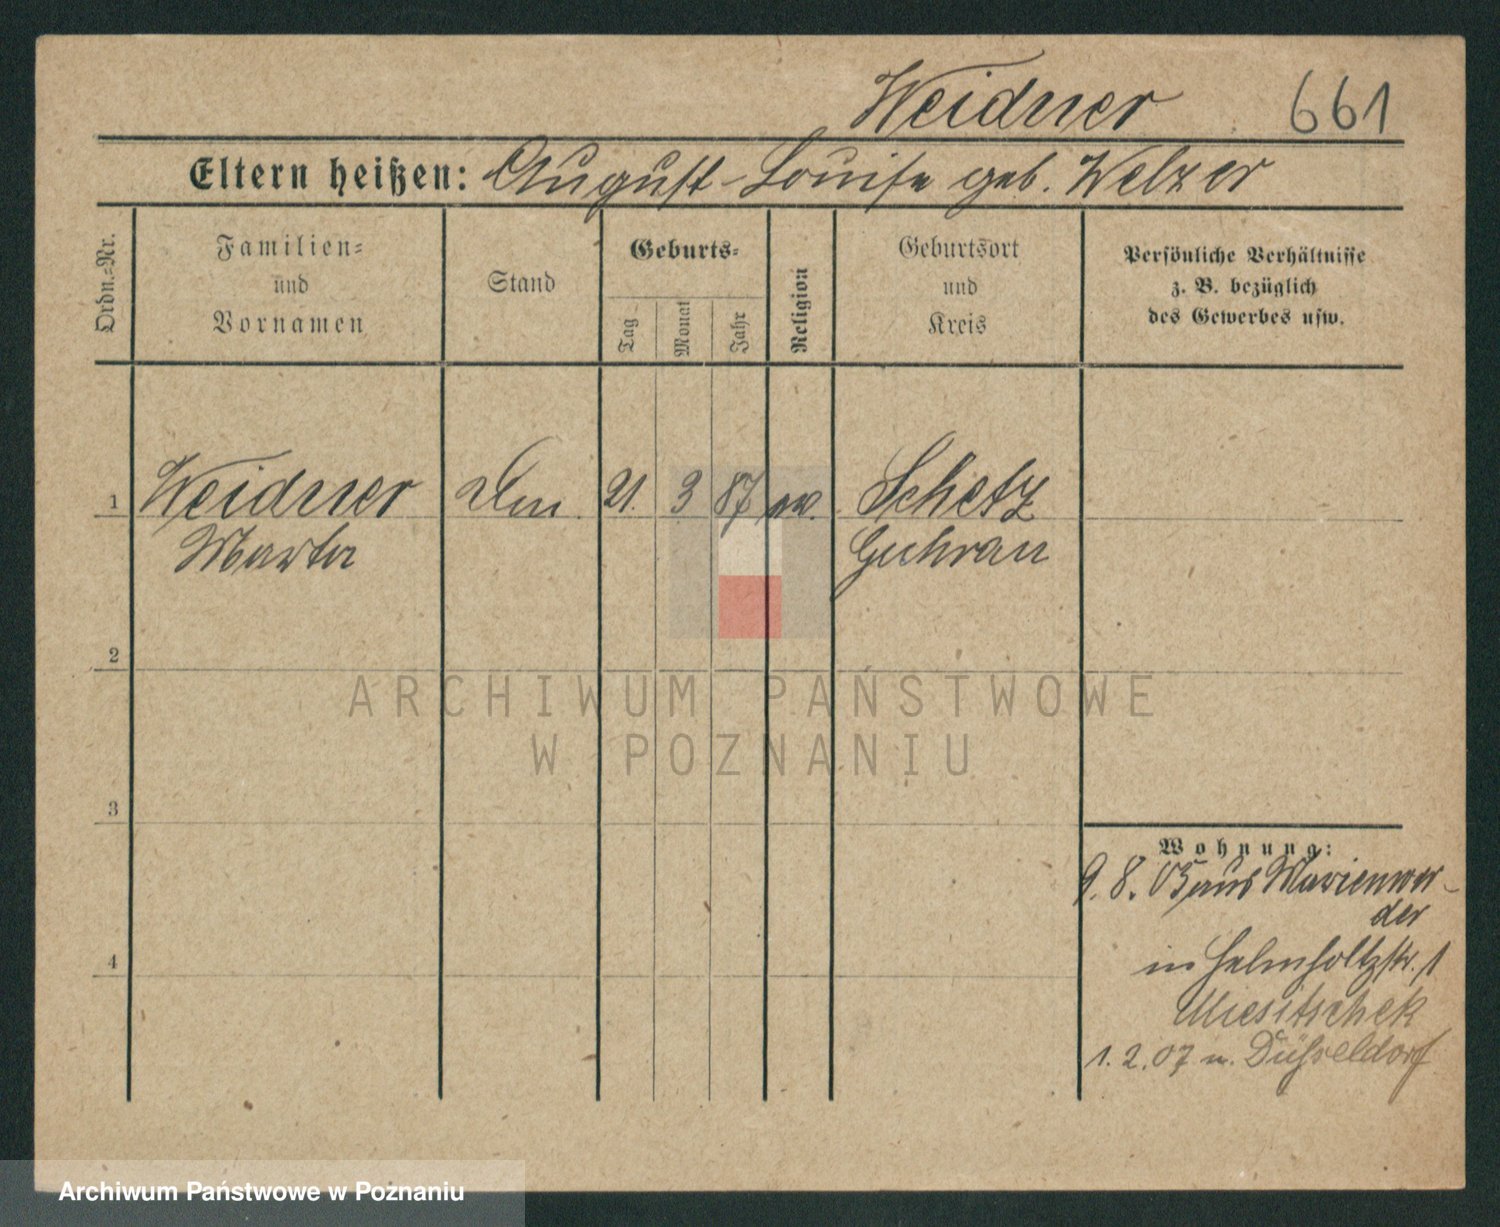 Weidner 661
Eltern heißen: August - Louise geb. Welzer
Ordn.-Nr.
Familien- und Vornamen
Stand
Geburts-
Tag
Monat
Jahr
Religion
Geburtsort und Kreis
Persönliche Verhältnisse z. B. bezüglich des Gewerbes usw.
1 Weidner 21. 3 87 Schetz
Marta Guhrau
2
ARCHIWUM PAŃSTWOWE
W POZNANIU
3
Wohnung:
9. 8. 05 aus Marienwer-
der
in Helmholtzstr. 1
Miesitschek
4
1. 2. 07 n. Düsseldorf
Archiwum Państwowe w Poznaniu